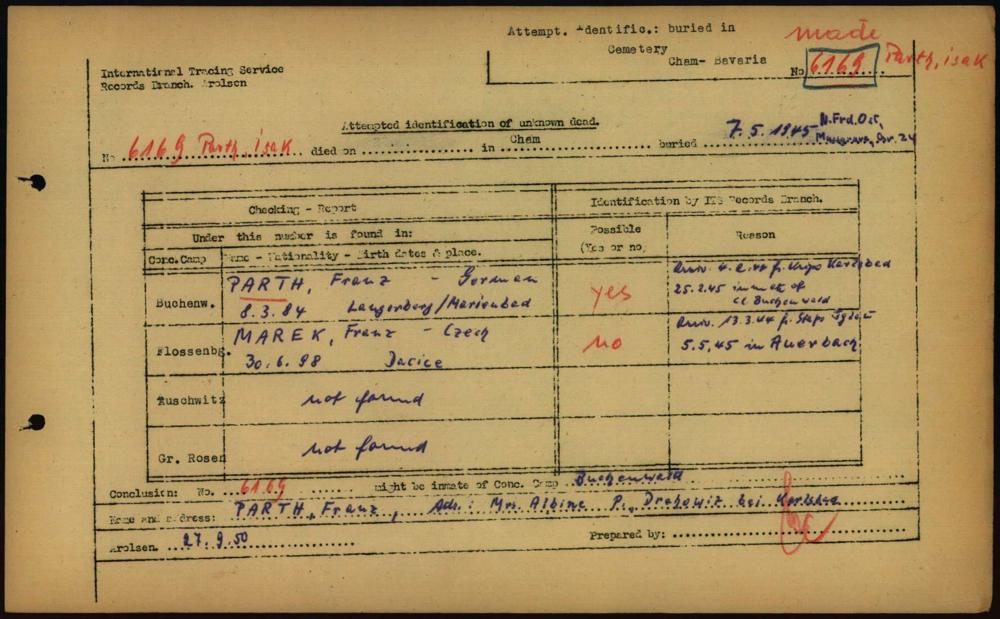 Attempt. Identific.: buried in
Cemetery
Cham- Bavaria
made
No 6169 Parth, isak
International Tracing Service
Records Branch. Arolsen
Attempted identification of unknown dead.
No 6169 Parth, isak died on in Cham buried 7.5.1945 N.Frd.Ost,
24
Checking - Report
Identification by ITS Records Branch.
Under this number is found in:
Possible
(Yes or no)
Reason
Conc.Camp
Name - Nationality - Birth dates & place.
Buchenw.
PARTH, Franz - German
8.3.84 Langerberg/Marienbad
yes
Karlsbad
25.2.45 inmate of
CC Buchenwald
Flossenbg.
MAREK, Franz - Czech
30.6.98 Dacice
no
13.3.44
5.5.45 in Auerbach
Auschwitz
not found
Gr. Rosen
not found
Conclusion: No. 6169 might be inmate of Conc. Camp Buchenwald
Name and address: PARTH, Franz, Adr.: Mrs. Albine P., bei
Arolsen. 27.9.50
Prepared by: